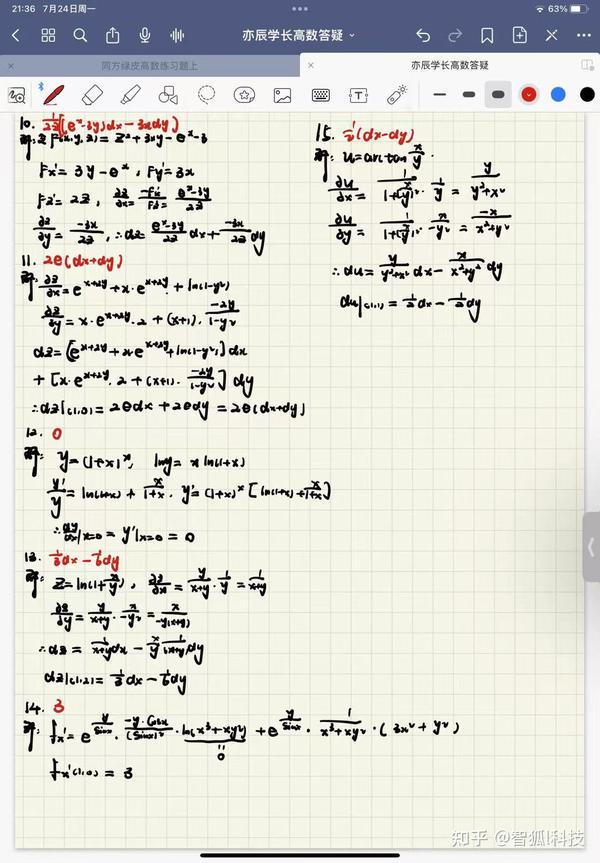 21:36 7月24日周一
63%
亦辰学长高数答疑
同方绿皮高数练习题上
亦辰学长高数答疑
10. 1/2z[(eˣ-3y)dx-3xdy]
解: 令F(x,y,z)=z²+3xy-eˣ-3
Fx'=3y-eˣ, Fy'=3x
Fz'=2z, ∂z/∂x=-Fx'/Fz'=(eˣ-3y)/2z
∂z/∂y=-3x/2z, ∴dz=(eˣ-3y)/2z dx+(-3x)/2z dy
11. 2e(dx+dy)
解: ∂z/∂x=e^(x+2y)+x·e^(x+2y)+ln(1-y²)
∂z/∂y=x·e^(x+2y)·2+(x+1)·(-2y)/(1-y²)
dz=[e^(x+2y)+x·e^(x+2y)+ln(1-y²)]dx
+[x·e^(x+2y)·2+(x+1)·(-2y)/(1-y²)]dy
∴dz|(1,0)=2edx+2edy=2e(dx+dy)
12. 0
解: y=(1+x)ˣ, lny=xln(1+x)
y'/y=ln(1+x)+x/(1+x), y'=(1+x)ˣ[ln(1+x)+x/(1+x)]
∴dy/dx|x=0=y'|x=0=0
13. 1/3dx-1/6dy
解: z=ln(1+x/y), ∂z/∂x=y/(x+y)·1/y=1/(x+y)
∂z/∂y=y/(x+y)·x/(-y²)=x/(-y(x+y))
∴dz=1/(x+y)dx-x/y 1/(x+y)dy
dz|(1,2)=1/3dx-1/6dy
14. 3
解: fx'=e^(y/sinx)·(-y·cosx)/(sinx)²·ln(x³+xy²)+e^(y/sinx)·1/(x³+xy²)·(3x²+y²)
0
fx'(1,0)=3
15. 1/2(dx-dy)
解: u=arctan x/y.
∂u/∂x=1/(1+(x/y)²)·1/y=y/(y²+x²)
∂u/∂y=1/(1+(x/y)²)·x/(-y²)=-x/(x²+y²)
∴du=y/(y²+x²)dx-x/(x²+y²)dy
du|(1,1)=1/2dx-1/2dy
知乎 @智狐l科技